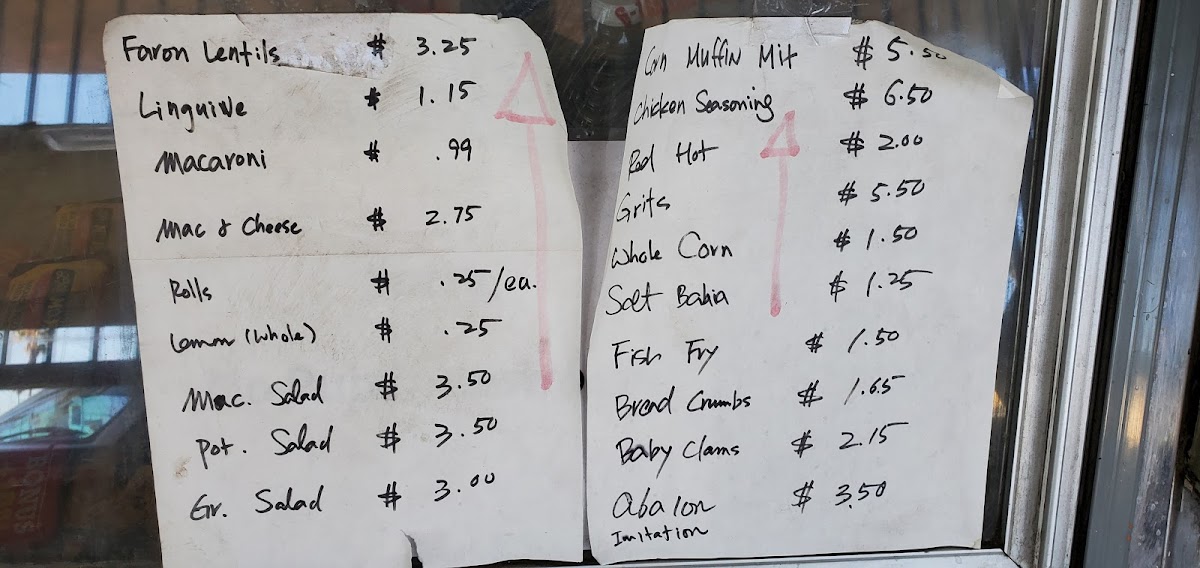 Faron Lentils $ 3.25
Linguine $ 1.15
Macaroni $ .99
Mac & Cheese $ 2.75
Rolls $ .25/ea.
Lemon (Whole) $ .25
Mac. Salad $ 3.50
Pot. Salad $ 3.50
Gr. Salad $ 3.00
Corn Muffin Mit $ 5.50
Chicken Seasoning $ 6.50
Red Hot $ 2.00
Grits $ 5.50
Whole Corn $ 1.50
Salt Bahia $ 1.25
Fish Fry $ 1.50
Bread Crumbs $ 1.65
Baby Clams $ 2.15
Abalon $ 3.50
Imitation